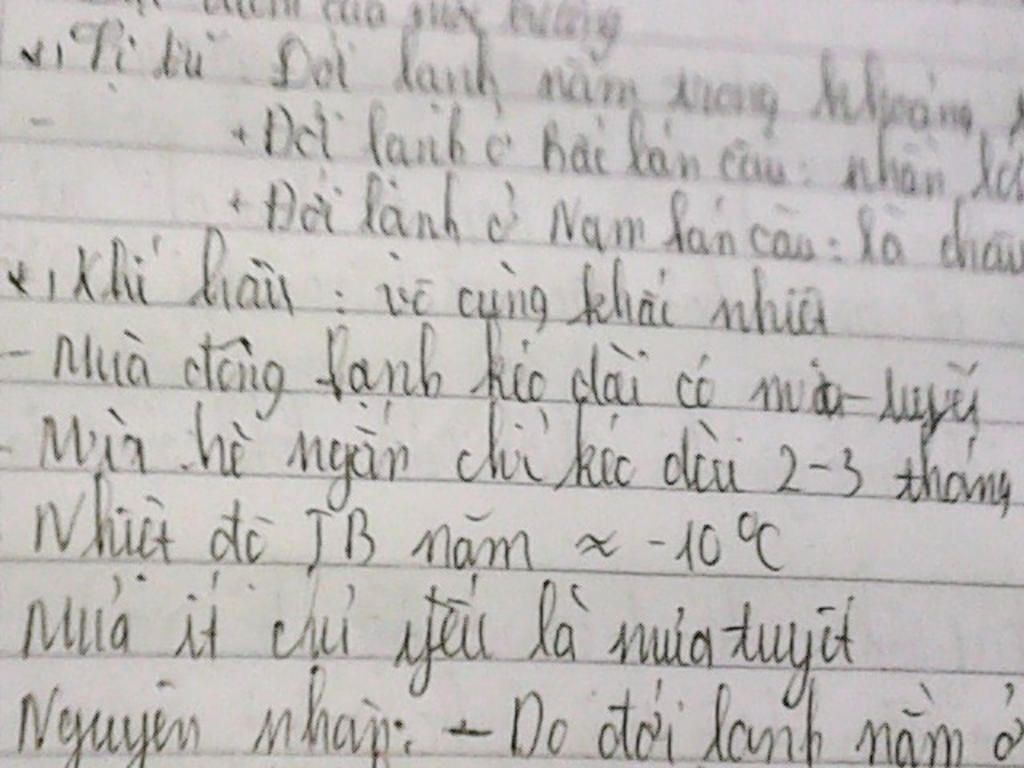 điểm của môi trường
*, Vị trí Đới lạnh nằm trong khoảng
+ Đới lạnh ở bắc bán cầu: nhận
+ Đới lạnh ở Nam bán cầu: là châu
*, Khí hậu: vô cùng khắc nhiệt
- Mùa đông lạnh kéo dài có mưa tuyết
- Mùa hè ngắn chỉ kéo dài 2-3 tháng
Nhiệt độ TB năm ≈ -10°C
Mưa ít chủ yếu là mưa tuyết
Nguyên nhân: - Do đới lạnh nằm ở